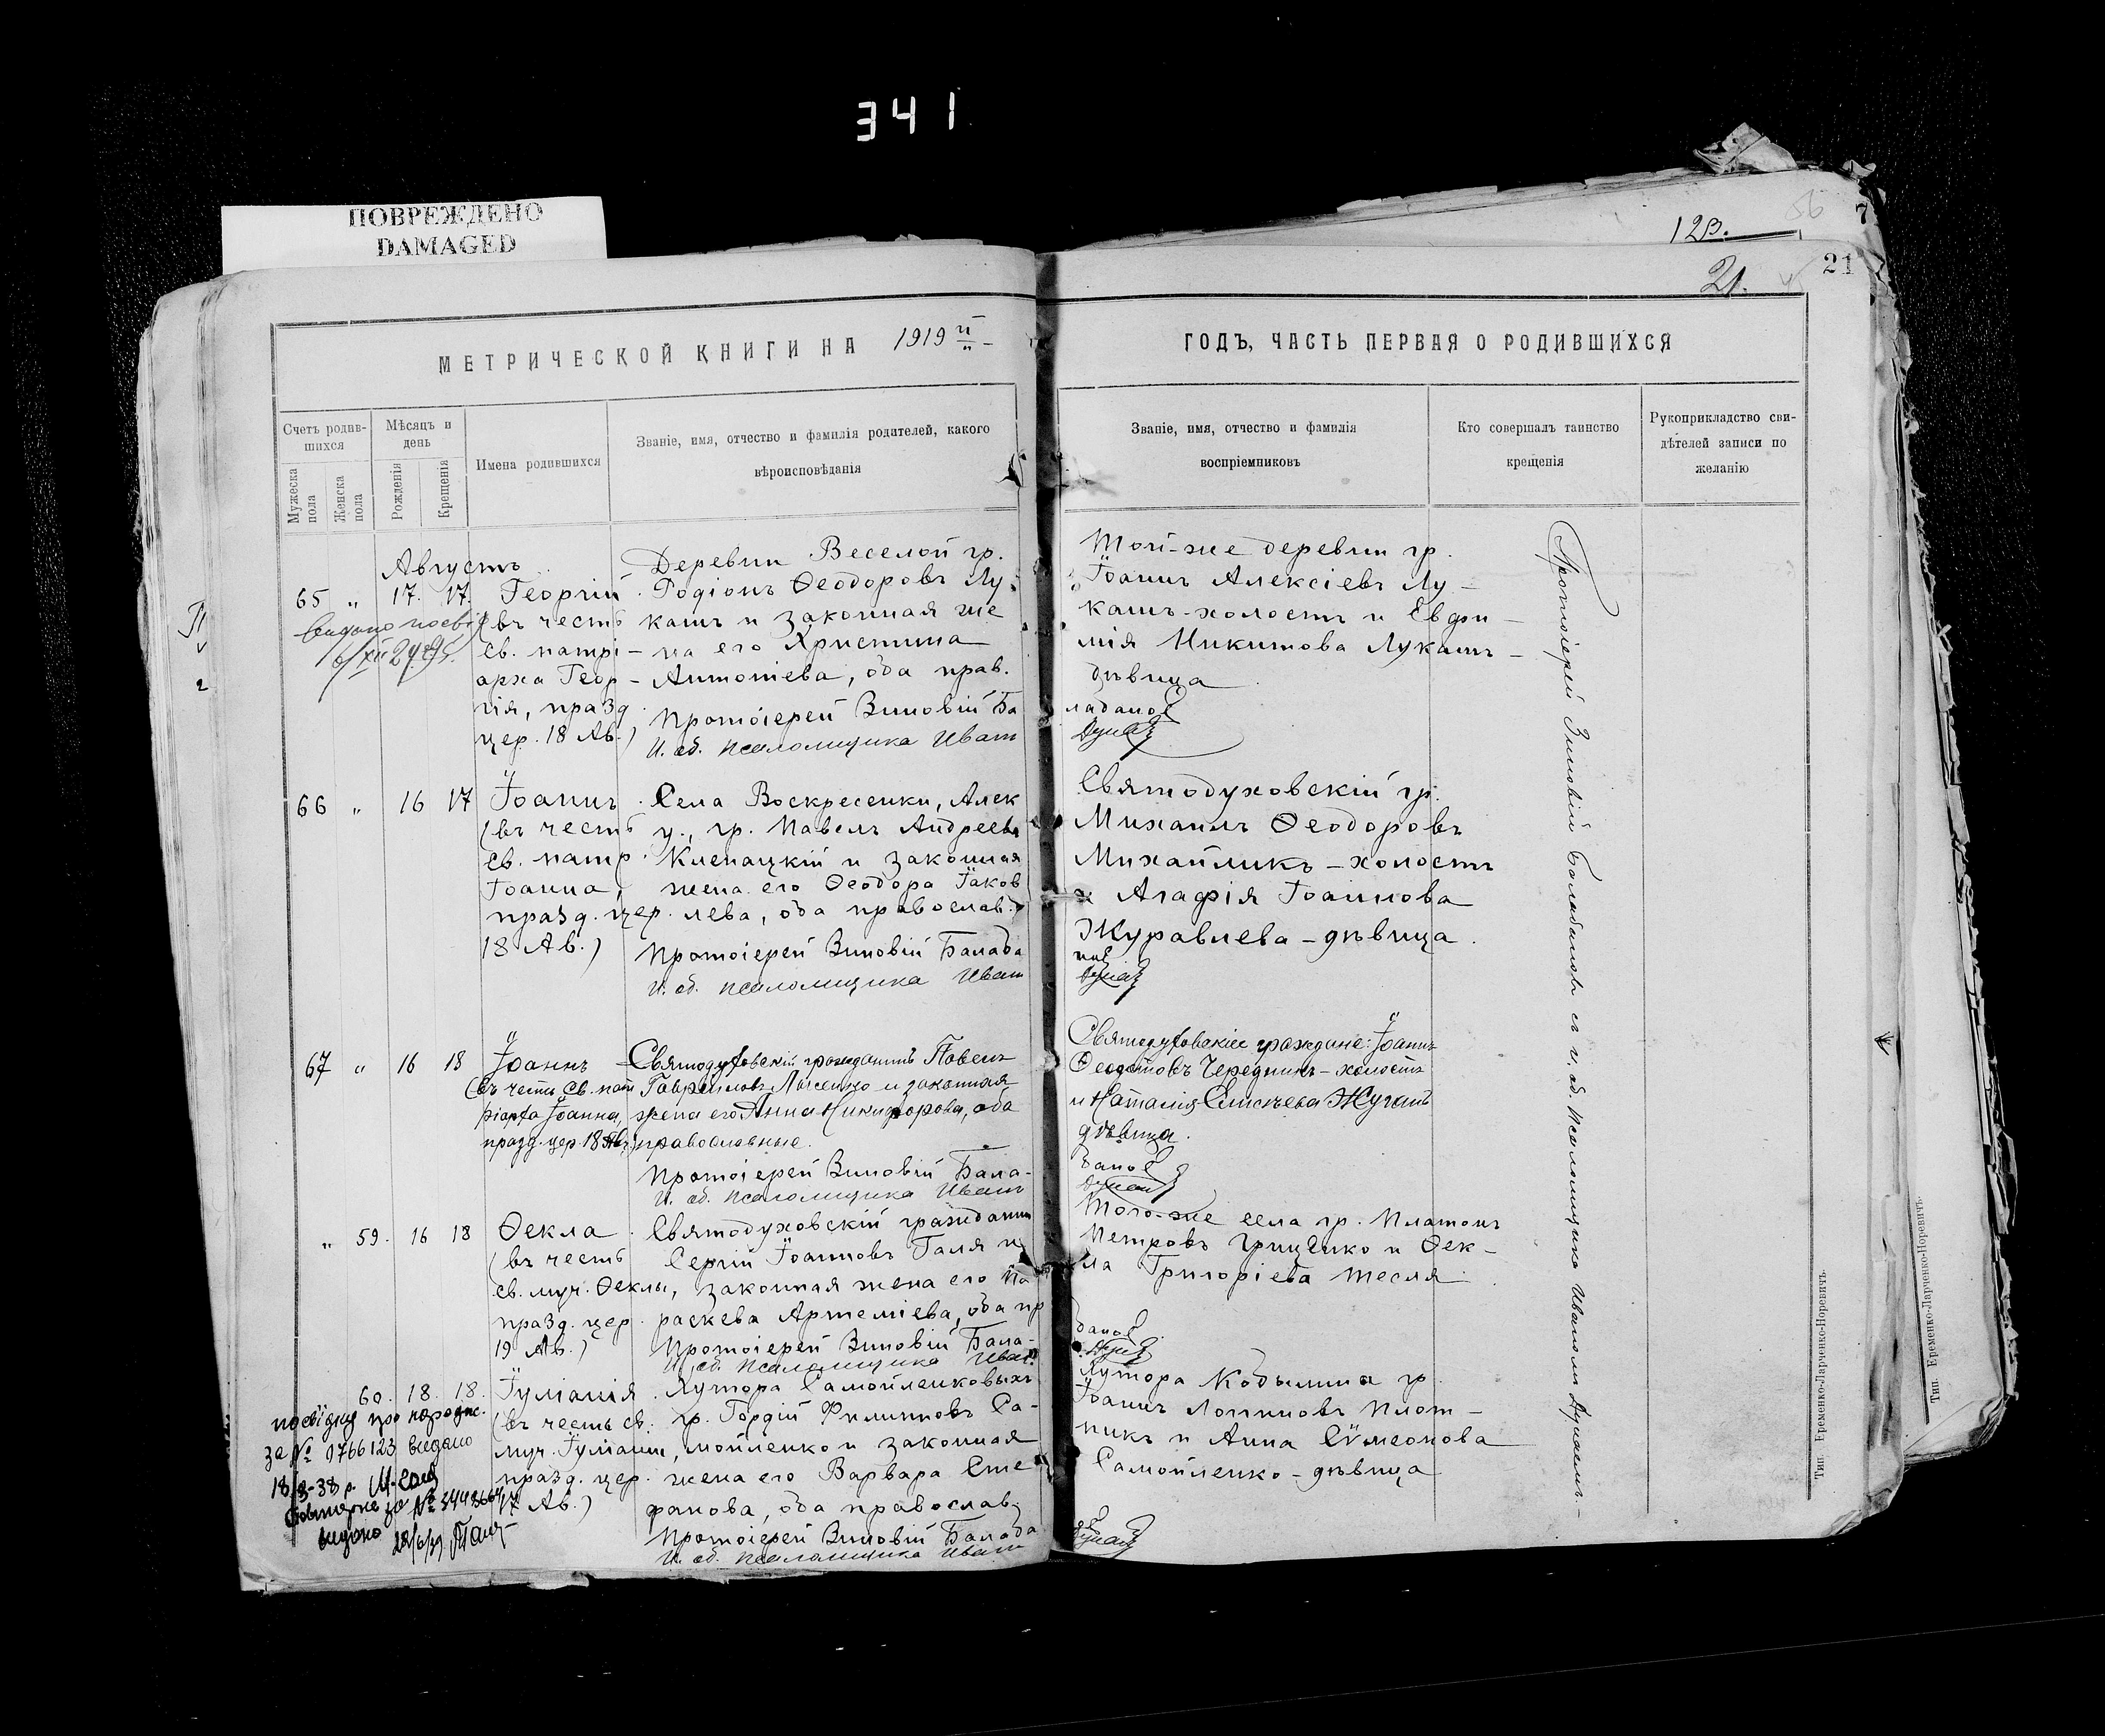 341
ПОВРЕЖДЕНО
DAMAGED
123.
7
21.
21
МЕТРИЧЕСКОЙ КНИГИ НА 1919 й
ГОДЪ, ЧАСТЬ ПЕРВАЯ О РОДИВШИХСЯ
Счетъ родив-
шихся
Мужеска пола
Женска пола
Мѣсяцъ и
день
Рожденія
Крещенія
Имена родившихся
Званіе, имя, отчество и фамилія родителей, какого
вѣроисповѣданія
Званіе, имя, отчество и фамилія
воспріемниковъ
Кто совершалъ таинство
крещенія
Рукоприкладство сви-
дѣтелей записи по
желанію
Августъ
65 " 17. 17.
Георгій
(въ честь
св. патрі-
арха Геор-
гія, празд.
цер. 18 Ав.)
Деревни Веселой гр.
Родіонъ Ѳеодоровъ Лу-
кашъ и законная же
на его Христина
Антоніева, оба прав.
Протоіерей Зиновій Ба
И. об. псаломщика Иван
Той-же деревни гр.
Іоаннъ Алексіевъ Лу-
кашъ-холостъ и Евфи-
мія Никитова Лукашъ-
дѣвица
лабанов
66 " 16 17
Іоаннъ
(въ честь
св. патр.
Іоанна,
празд. цер.
18 Ав.)
Села Воскресенки, Алек
у., гр. Павелъ Андреевъ
Клепацкій и законная
жена его Ѳеодора Іаков
лева, оба православ.
Протоіерей Зиновій Балаба
И. об. псаломщика Иван
Святодуховскій гр.
Михаилъ Ѳеодоровъ
Михайликъ-холостъ
и Агафія Іоаннова
Журавлева-дѣвица.
нов
67 " 16 18
Іоаннъ
(въ честь св. пат
ріарха Іоанна,
празд. цер. 18 Ав.)
Святодуховскій гражданинъ Павелъ
Гавриловъ Лысенко и законная
жена его Анна Никифорова, оба
православные.
Протоіерей Зиновій Бала-
И. об. псаломщика Иван
Святодуховскіе граждане: Іоаннъ
Ѳеодотовъ Чередникъ-холостъ
и Наталія Елисѣева Жуганъ
дѣвица.
банов
" 59. 16 18
Ѳекла
(въ честь
св. муч. Ѳеклы,
празд. цер.
19 Ав.)
Святодуховскій гражданин
Сергій Іоанновъ Галя и
законная жена его Па
раскева Артеміева, оба пр
Протоіерей Зиновій Бала-
И. об. псаломщика Иван
Того-же села гр. Платонъ
Петровъ Гриценко и Ѳек-
ла Григоріева Тесля
банов
60. 18. 18.
Іуліанія
(въ честь св.
муч. Іуліаніи,
празд. цер.
17 Ав.)
Хутора Самойленковыхъ
гр. Гордій Филипповъ Са-
мойленко и законная
жена его Варвара Сте
фанова, оба православ.
Протоіерей Зиновій Балаба
И. об. псаломщика Иван
Хутора Кобылина гр.
Іоаннъ Логиновъ Плот-
никъ и Анна Сѵмеонова
Самойленко-дѣвица
нов
за № 9766123 видано
18/3-38 р.
видано
Протоіерей Зиновій Балабановъ съ и. об. псаломщика Иваномъ
Тип. Еременко-Ларченко-Норевичъ.
Тип. Еременко-Ларченко-Норевичъ.